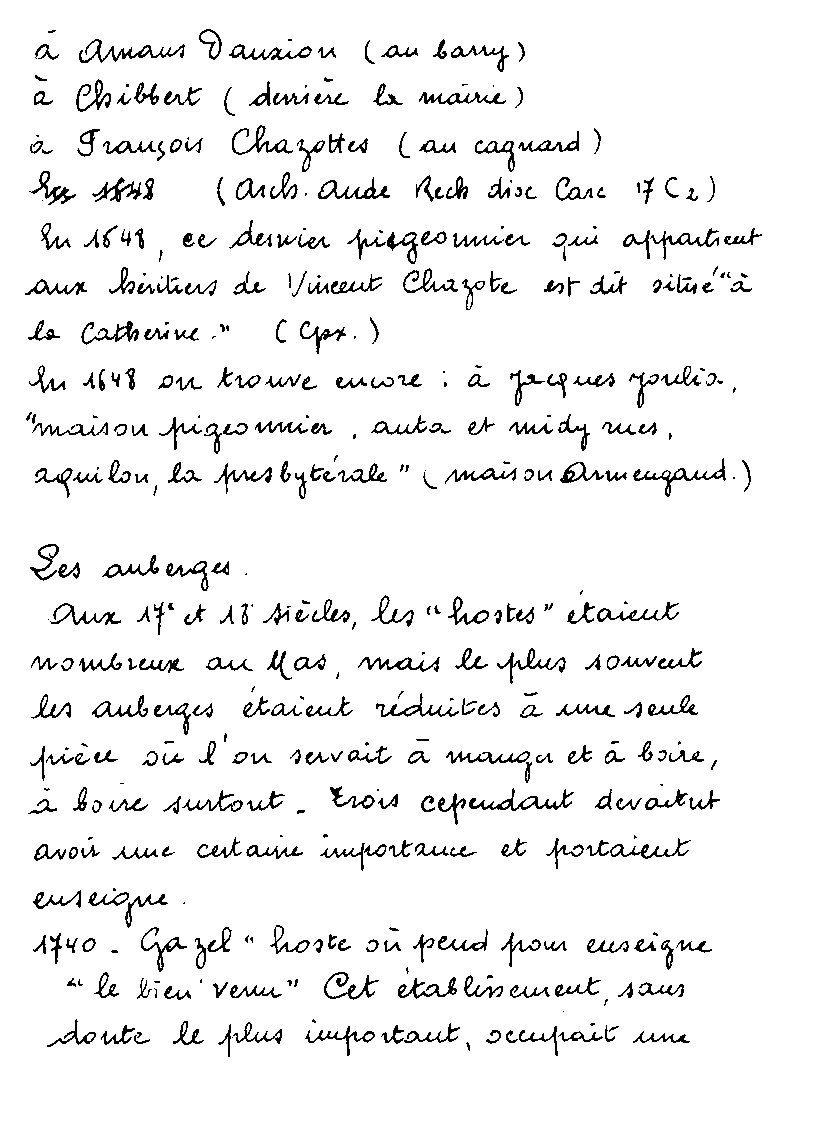 à Arnaus Dauxion (au barry)
à Chibbert (derrière la mairie)
à François Chazottes (au cagnard)
En 1648 (Arch. Aude Rech disc Carc 17 C2)
En 1648, ce dernier pigeonnier qui appartient
aux héritiers de Vincent Chazote est dit situé "à
la Catherine." (Cpx.)
En 1648 on trouve encore : à Jacques Joulia,
"maison pigeonnier, auta et midy rues,
aquilon, la presbytérale" (maison Armengaud.)
Les auberges.
Aux 17e et 18 siècles, les "hostes" étaient
nombreux au Mas, mais le plus souvent
les auberges étaient réduites à une seule
pièce où l'on servait à manger et à boire,
à boire surtout. Trois cependant devaient
avoir une certaine importance et portaient
enseigne.
1740 - Gazel "hoste où pend pour enseigne
"le bien venu" Cet établissement, sans
doute le plus important, occupait une